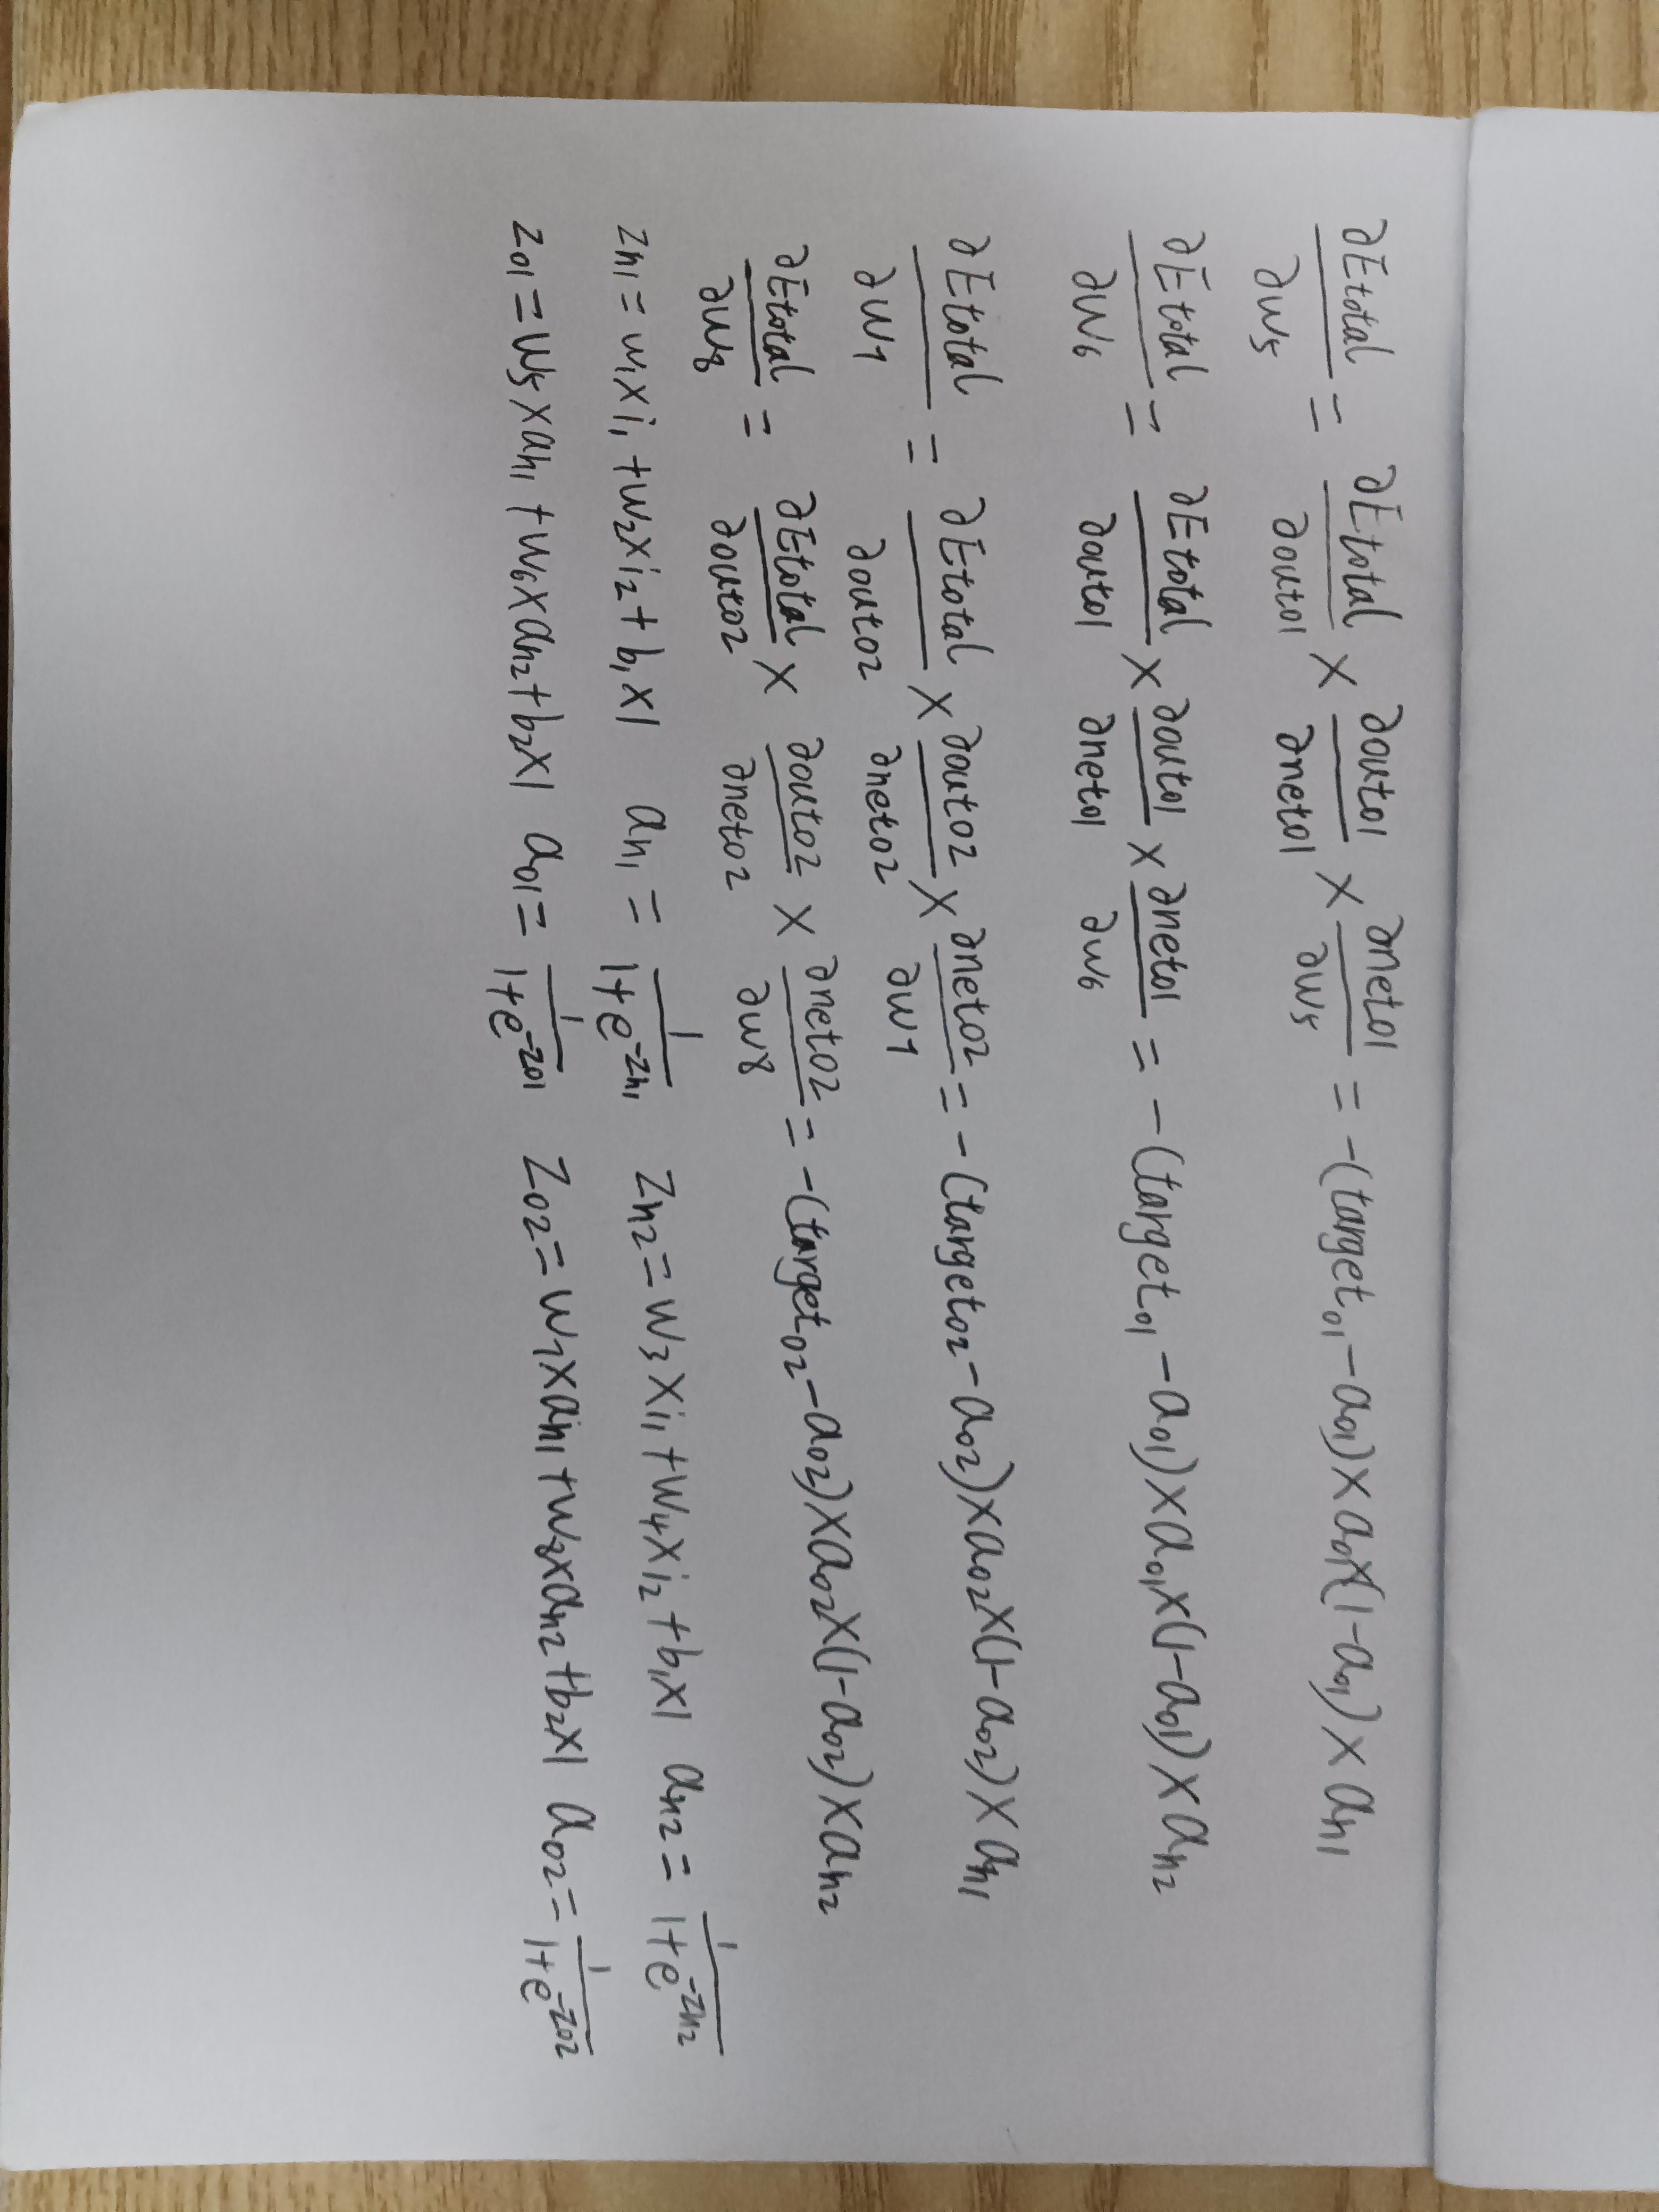 ∂Etotal/∂w5 = ∂Etotal/∂outo1 × ∂outo1/∂neto1 × ∂neto1/∂w5 = -(targeto1 - ao1) × ao1×(1-ao1) × ah1
∂Etotal/∂w6 = ∂Etotal/∂outo1 × ∂outo1/∂neto1 × ∂neto1/∂w6 = -(targeto1 - ao1) × ao1×(1-ao1) × ah2
∂Etotal/∂w7 = ∂Etotal/∂outo2 × ∂outo2/∂neto2 × ∂neto2/∂w7 = -(targeto2 - ao2) × ao2×(1-ao2) × ah1
∂Etotal/∂w8 = ∂Etotal/∂outo2 × ∂outo2/∂neto2 × ∂neto2/∂w8 = -(targeto2 - ao2) × ao2×(1-ao2) × ah2
zh1 = w1×i1 + w2×i2 + b1×1 ah1 = 1/(1+e^-zh1) zh2 = w3×i1 + w4×i2 + b1×1 ah2 = 1/(1+e^-zh2)
zo1 = w5×ah1 + w6×ah2 + b2×1 ao1 = 1/(1+e^-zo1) zo2 = w7×ah1 + w8×ah2 + b2×1 ao2 = 1/(1+e^-zo2)